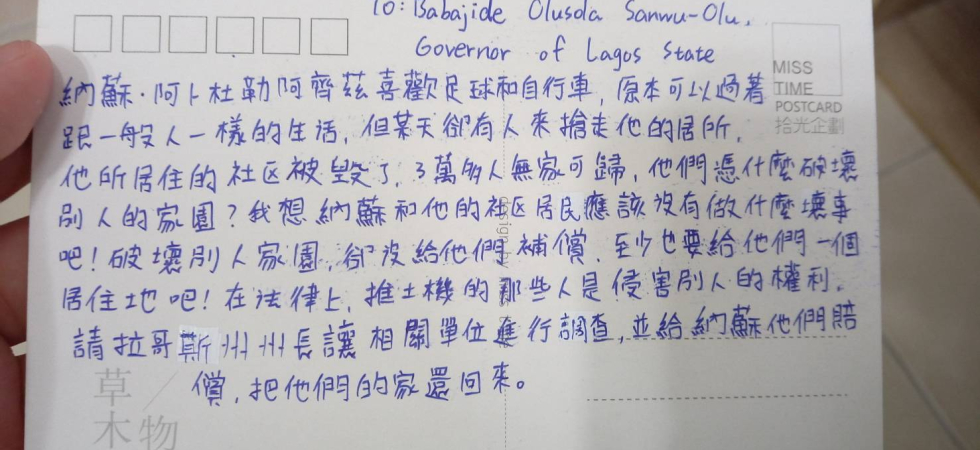 To: Babajide Olusola Sanwu-Olu,
Governor of Lagos State
MISS
TIME
POSTCARD
拾光企劃
納蘇·阿卜杜勒阿齊茲喜歡足球和自行車,原本可以過著
跟一般人一樣的生活,但某天卻有人來搶走他的居所,
他所居住的社区被毀了,3萬多人無家可歸,他們憑什麼破壞
別人的家園?我想納蘇和他的社区居民應該沒有做什麼壞事
吧!破壞別人家園,卻沒給他們補償,至少也要給他們一個
居住土地吧!在法律上,推土機的那些人是侵害別人的權利,
請拉哥斯州州長讓相關單位進行調查,並給納蘇他們賠
償,把他們的家還回來。
草/
木物